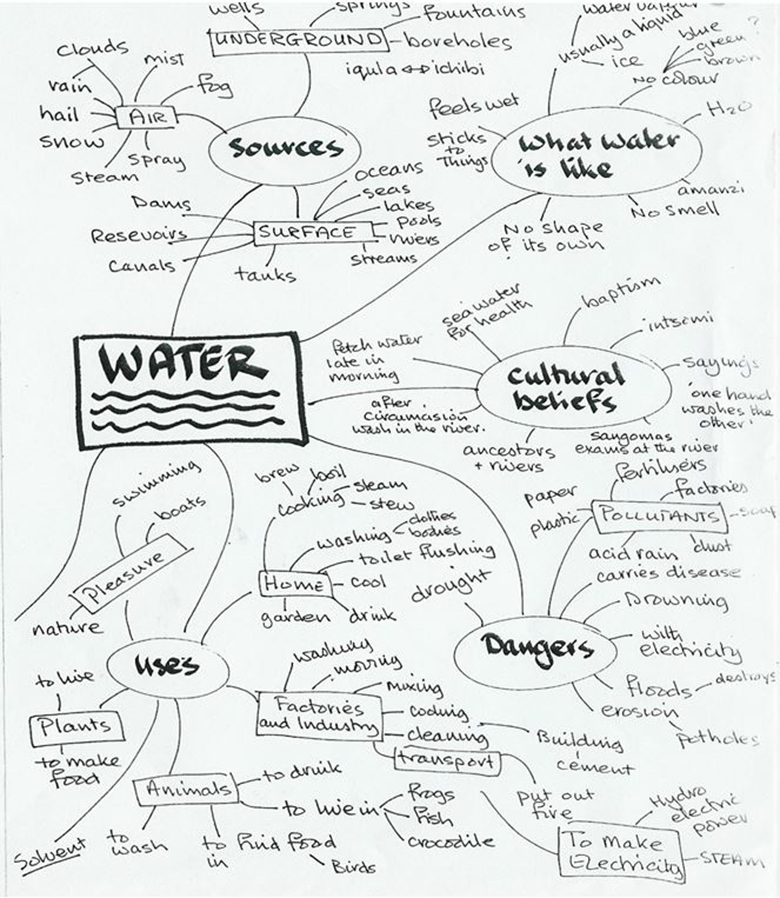 wells
springs
fountains
UNDERGROUND
boreholes
iqula ↔ ichibi
clouds
mist
rain
fog
hail
AIR
snow
Steam
Spray
Sources
oceans
seas
lakes
pools
rivers
streams
SURFACE
Dams
Resevoirs
Canals
tanks
usually a liquid
ice
blue
green?
brown
No colour
H2O
feels wet
Sticks
to
Things
What water
is like
amanzi
No smell
No shape
of its own
WATER
sea water
for health
baptism
intsomi
Fetch water
late in
morning
Cultural
beliefs
sayings
'one hand
washes the
other'
after
circumcusion
wash in the river.
ancestors
+ rivers
sangomas
exams at the river
fertilisers
factories
paper
plastic
POLLUTANTS
soap
acid rain
dust
carries disease
Drowning
drought
Dangers
with
electricity
floods
destroys
erosion
potholes
swimming
boats
Pleasure
nature
brew
boil
steam
cooking
stew
washing
clothes
bodies
toilet flushing
HOME
cool
garden
drink
uses
to live
Plants
to make
food
washing
moving
mixing
Factories
and Industry
cooling
cleaning
Building
cement
transport
put out
fire
Animals
to drink
to live in
frogs
fish
crocodile
Solvent
to
wash
to find food
in
Birds
To make
Electricity
Hydro
electric
power
STEAM